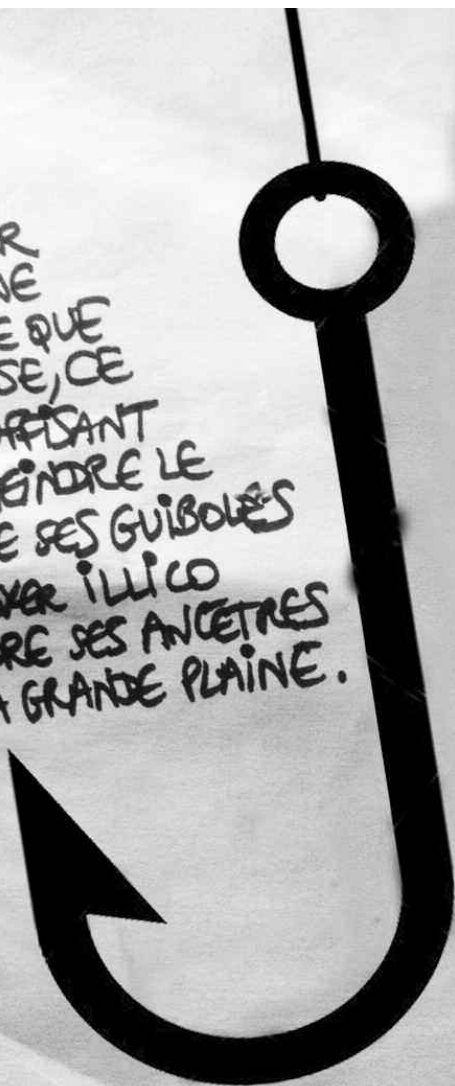 R
NE
E QUE
SE, CE
FFISANT
EINDRE LE
E SES GUIBOLES
YER ILLICO
DRE SES ANCETRES
A GRANDE PLAINE.